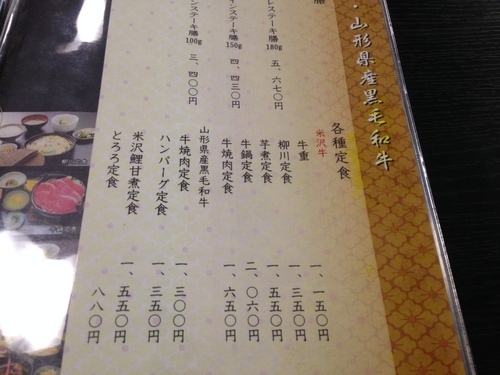 ・山形県産黒毛和牛
膳
レステーキ膳 180g 五、六七〇円
インステーキ膳 150g 四、四三〇円
ンステーキ膳 100g 三、四〇〇円
各種定食
米沢牛
牛重 一、一五〇円
柳川定食 一、三五〇円
芋煮定食 一、五五〇円
牛鍋定食 二、〇六〇円
牛焼肉定食 一、六五〇円
山形県産黒毛和牛
牛焼肉定食 一、三〇〇円
ハンバーグ定食 一、三五〇円
米沢鯉甘煮定食 一、五五〇円
とろろ定食 八八〇円